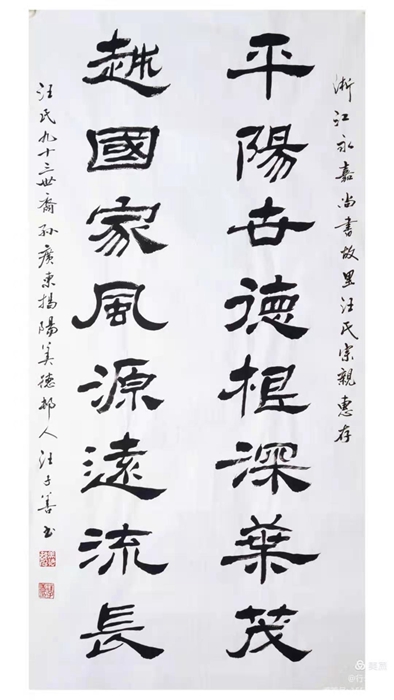 浙江永嘉尚書故里汪氏宗親惠存
平陽世德根深葉茂
越國家風源遠流長
汪氏九十三世裔孫廣東揭陽美德鄉人汪子善书